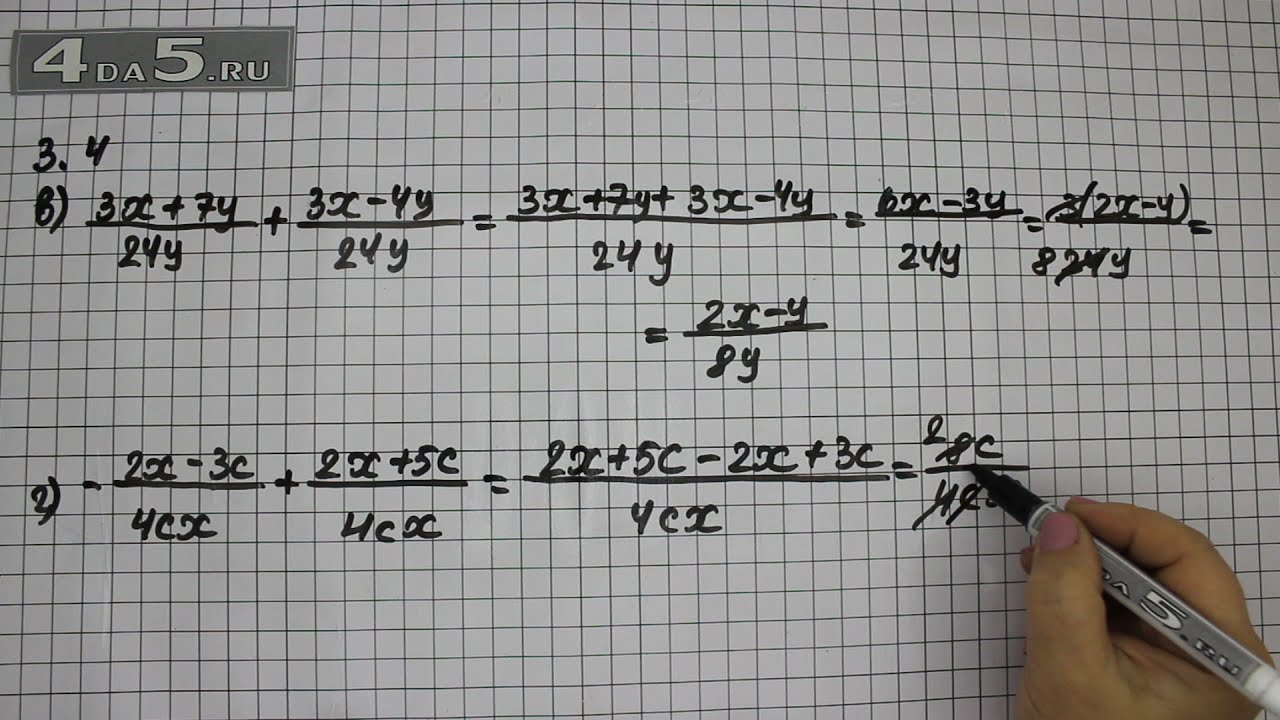 4DA5.RU
3. 4
в) (3x + 7y)/(24y) + (3x - 4y)/(24y) = (3x + 7y + 3x - 4y)/(24y) = (6x - 3y)/(24y) = 3(2x - y)/(8 24y) =
= (2x - y)/(8y)
г) - (2x - 3c)/(4cx) + (2x + 5c)/(4cx) = (2x + 5c - 2x + 3c)/(4cx) = (2 8c)/(4c
DA5.RU